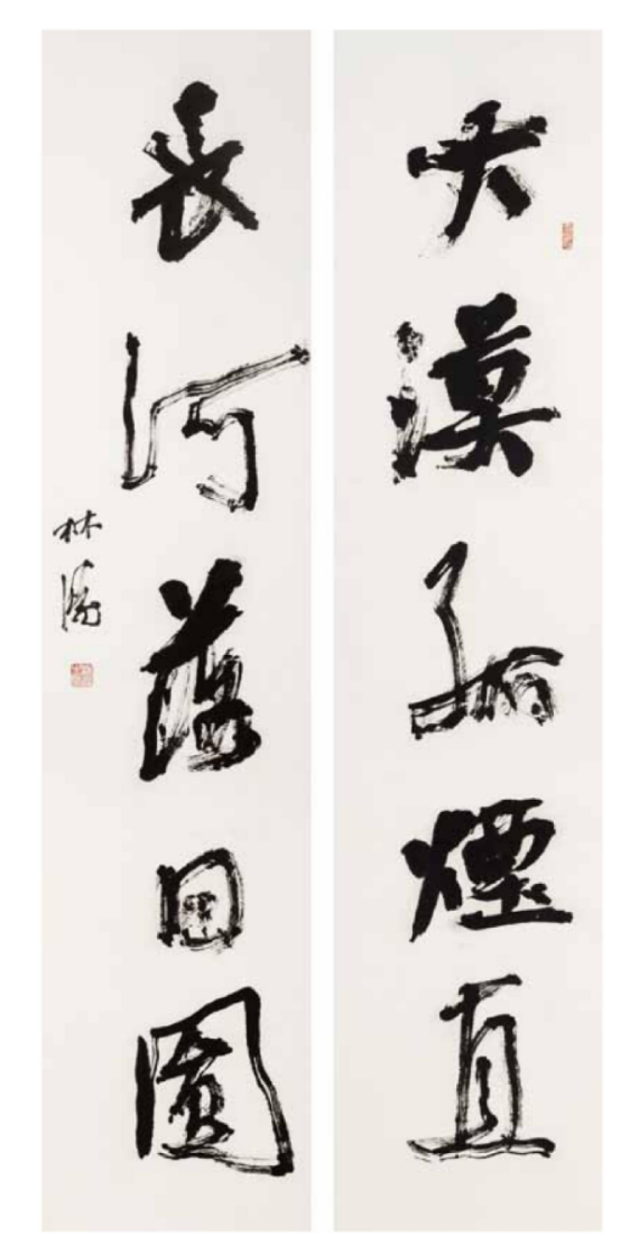 大漠孤煙直
長河落日圓
林濤